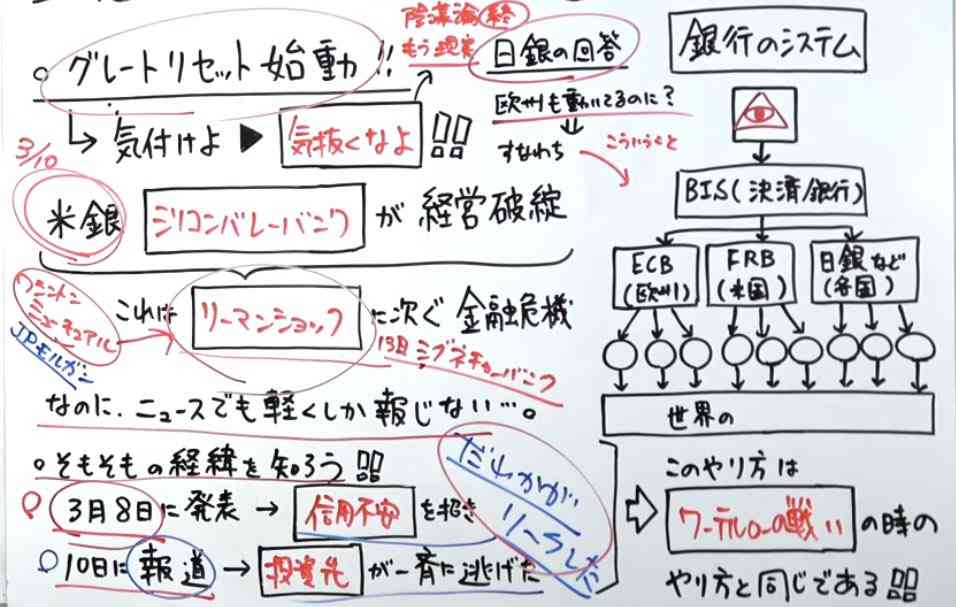 陰謀論(終)
もう現実
日銀の回答
銀行のシステム
。グレートリセット始動!!
欧州も動いてるのに?
↳ 気付けよ ▶ 気抜くなよ!!
すなわち
こういうくと
3/10
BIS(決済銀行)
米銀 シリコンバレーバンク が 経営破綻
ECB
(欧州)
FRB
(米国)
日銀など
(各国)
ワシントン
ミューチュアル
JPモルガン
これは リーマンショック に次ぐ 金融危機
13日 シグネチャーバンク
なのに、ニュースでも軽くしか報じない…。
世界の
。そもそもの経緯を知ろう!!
だれかが
リークした
このやり方は
3月8日に発表 → 信用不安 を招き
ワーテルローの戦い の時の
10日に報道 → 投資先 が一斉に逃げた
やり方と同じである!!